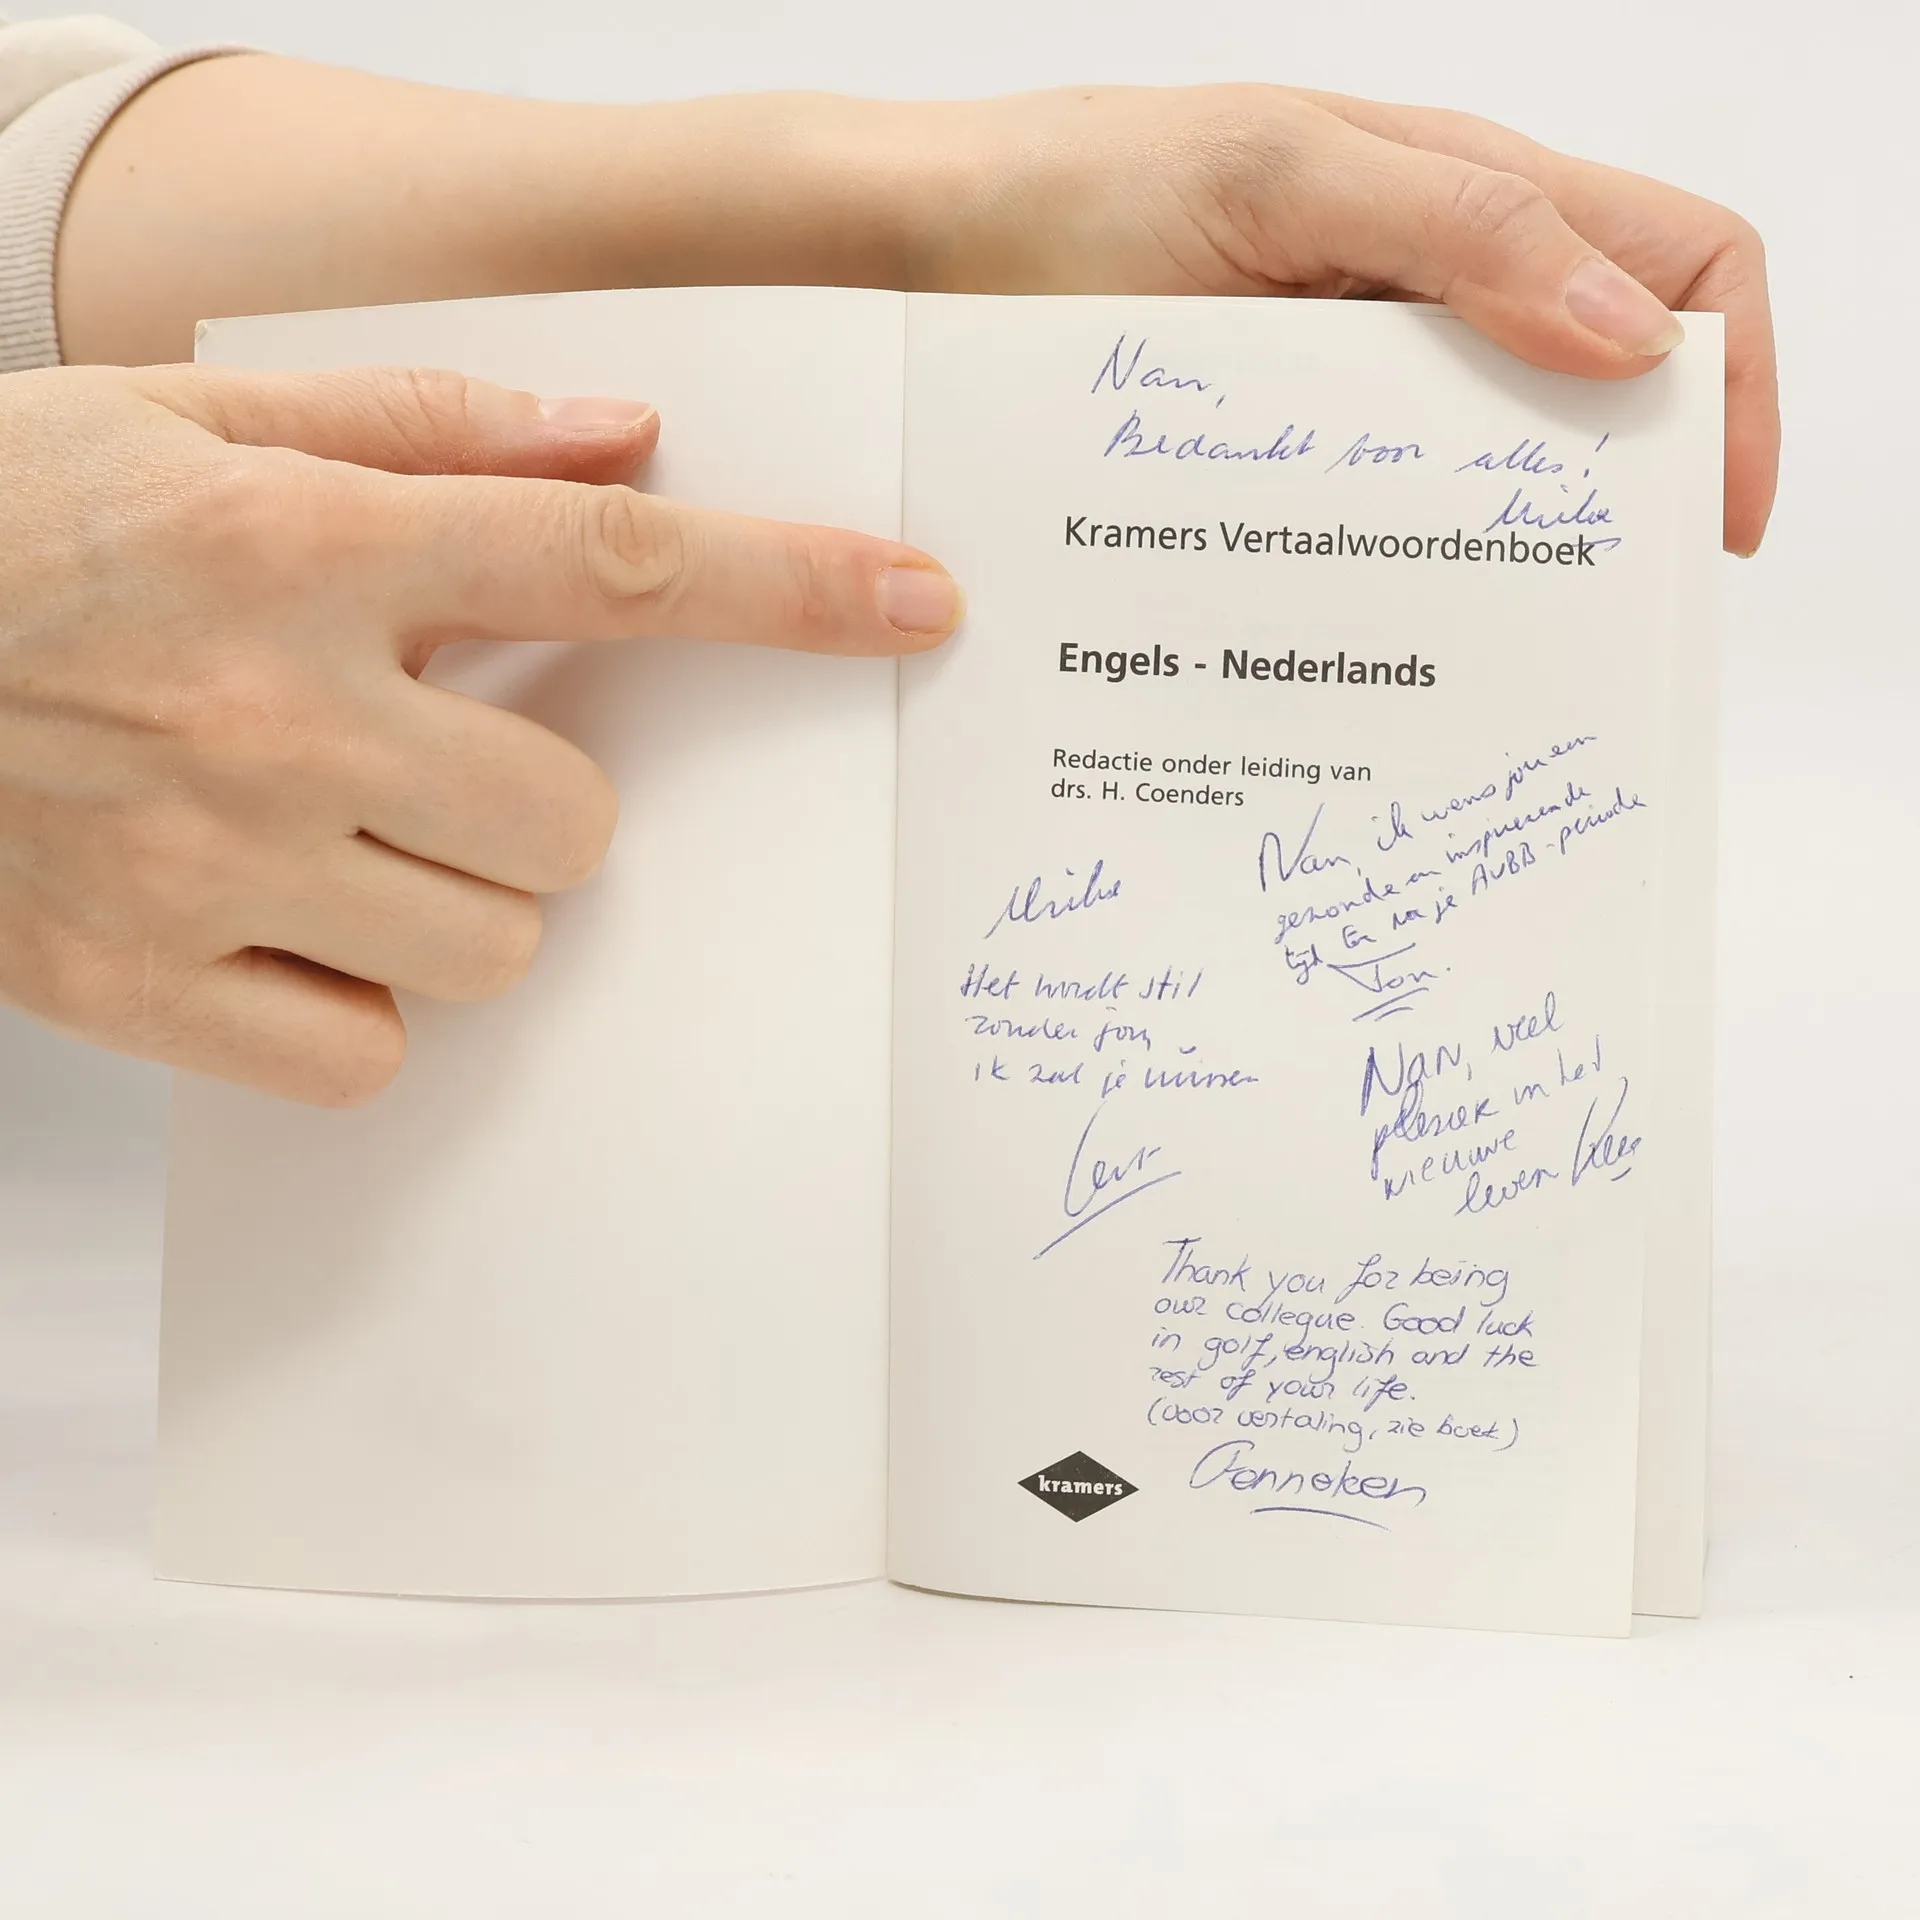 Nan,
Bedankt voor alles!
Kramers Vertaalwoordenboek
Engels - Nederlands
Redactie onder leiding van
drs. H. Coenders
Nan, ik wens jou een
gezonde en inspirerende
tijd En na je AVBB-periode
Ton.
Het wordt stil
zonder jou,
ik zal je missen
Nan, veel
plezier in het
nieuwe
leven
Thank you for being
our collegue. Good luck
in golf, english and the
rest of your life.
(voor vertaling, zie boek)
Fenneken
kramers